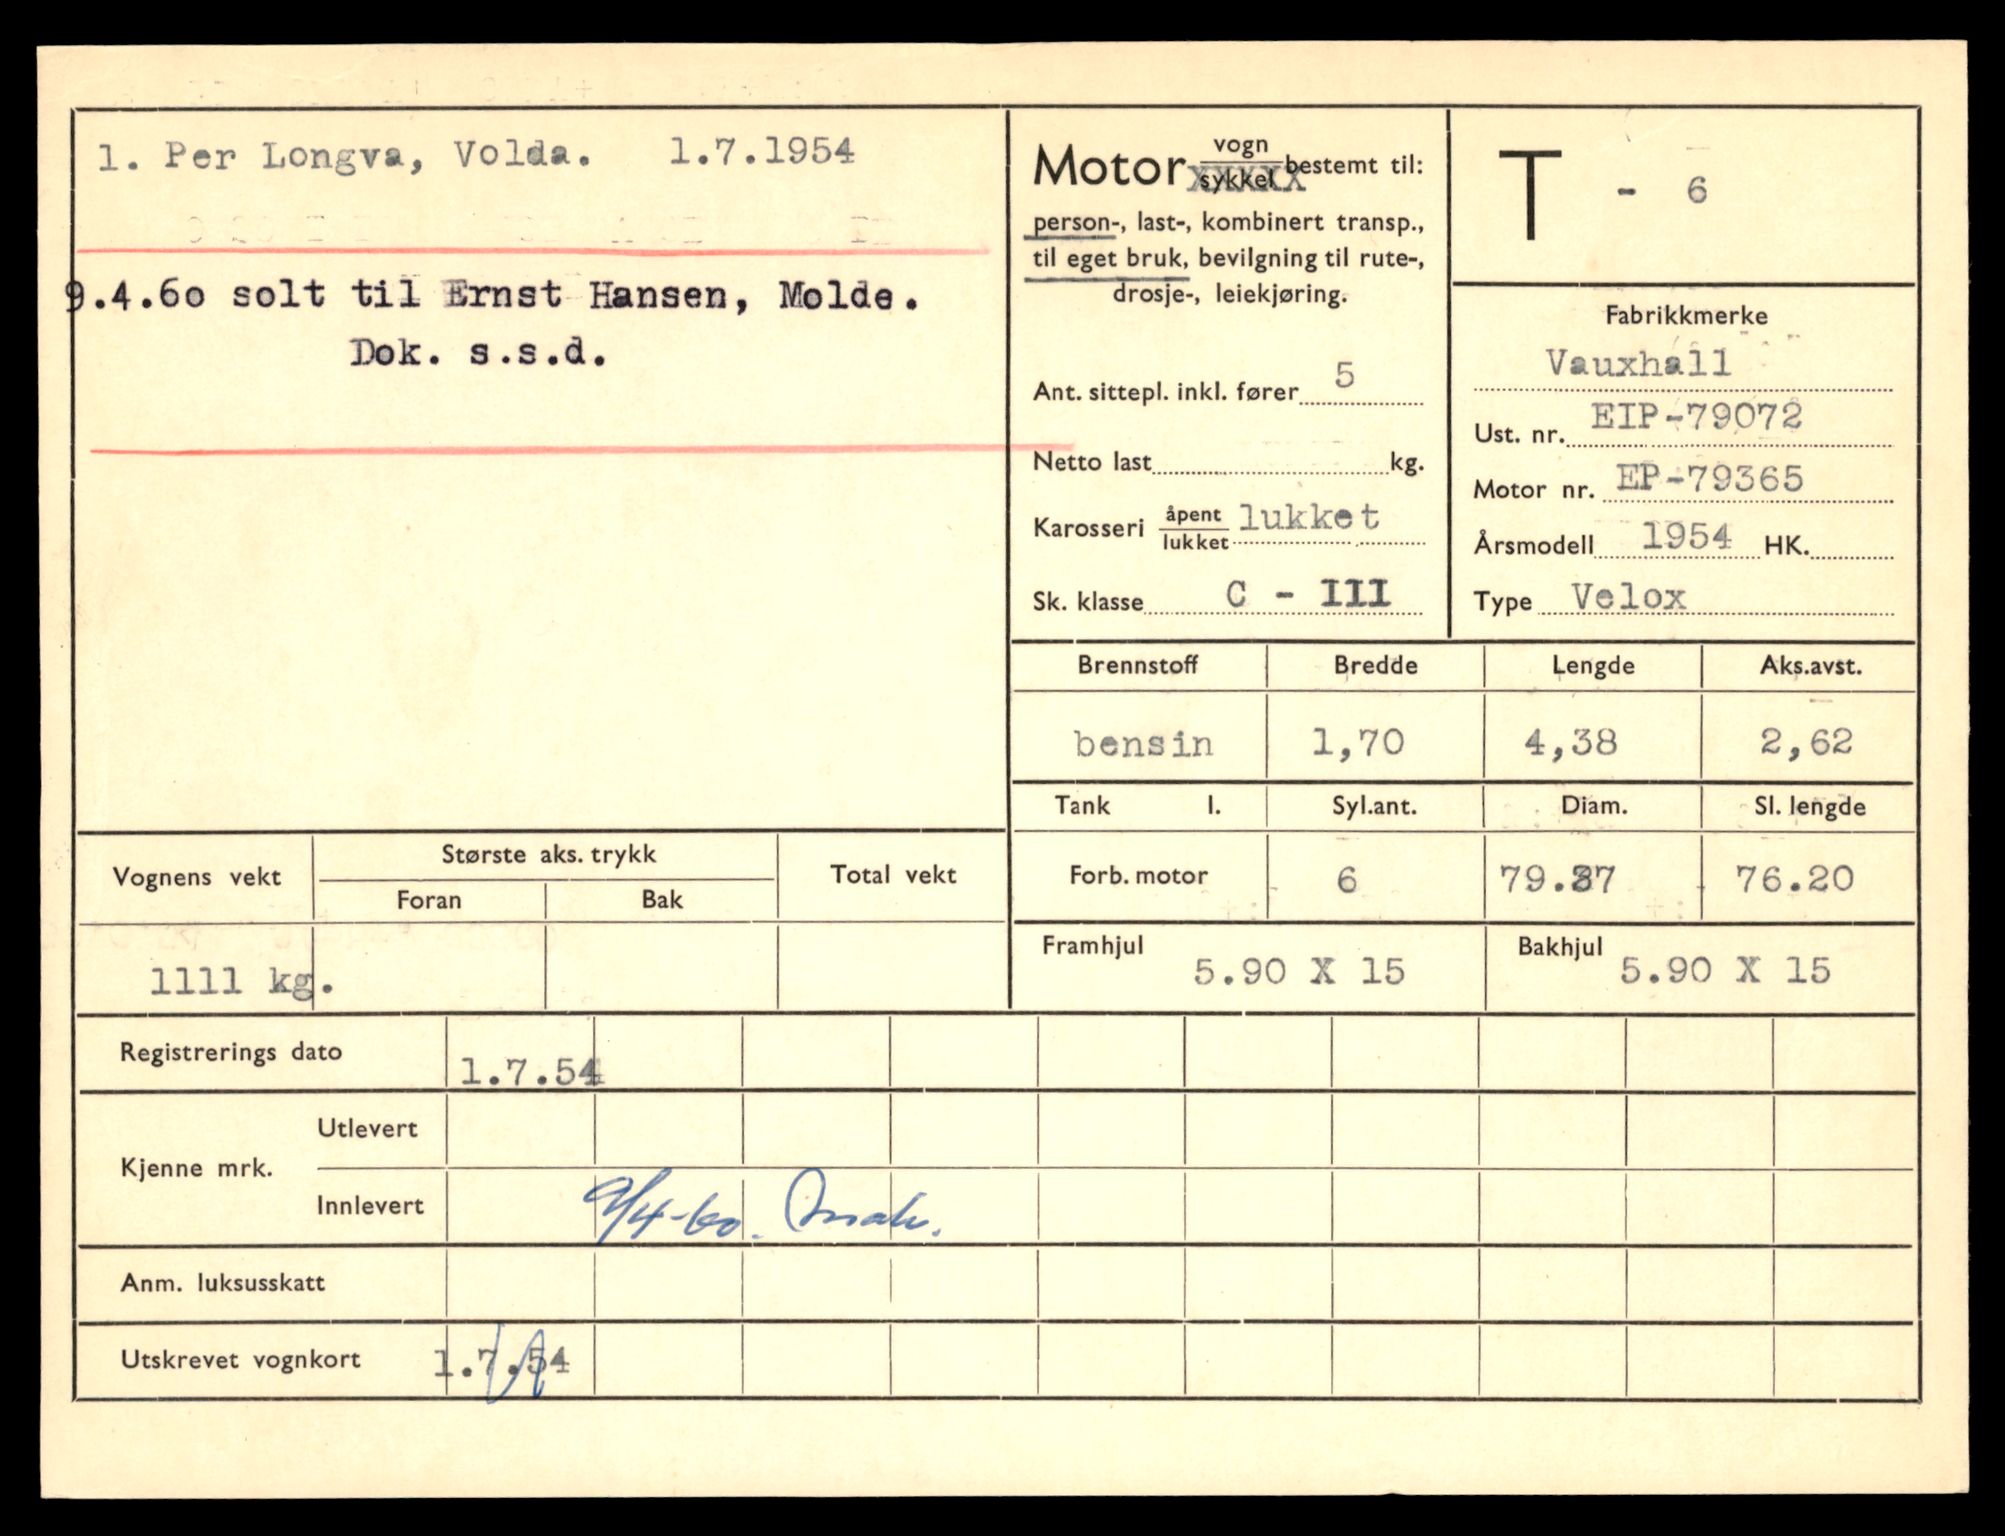 1. Per Longva, Volda. 1.7.1954
9.4.60 solt til Ernst Hansen, Molde.
Dok. s.s.d.
Motor vogn
sykkel bestemt til:
person-, last-, kombinert transp.,
til eget bruk, bevilgning til rute-,
drosje-, leiekjøring.
Ant. sittepl. inkl. fører 5
Netto last kg.
Karosseri åpent lukket
lukket
Sk. klasse C - III
T - 6
Fabrikkmerke
Vauxhall
Ust. nr. EIP-79072
Motor nr. EP-79365
Årsmodell 1954 HK.
Type Velox
Brennstoff Bredde Lengde Aks.avst.
bensin 1,70 4,38 2,62
Tank l. Syl.ant. Diam. Sl. lengde
Forb. motor 6 79.37 76.20
Framhjul 5.90 X 15 Bakhjul 5.90 X 15
Vognens vekt Største aks. trykk Total vekt
Foran Bak
1111 kg.
Registrerings dato 1.7.54
Kjenne mrk. Utlevert
Innlevert 9/4-60.
Anm. luksusskatt
Utskrevet vognkort 1.7.54